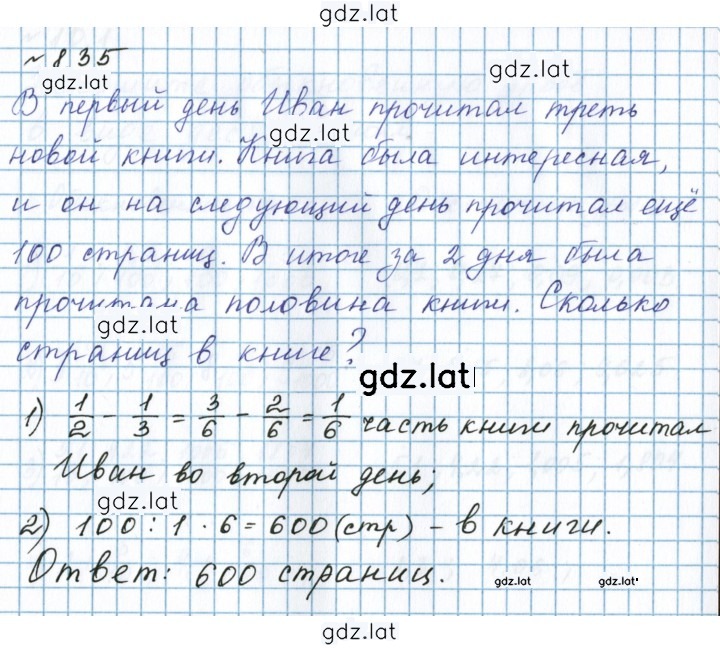 gdz.lat
№835
gdz.lat
gdz.lat
В первый день Иван прочитал треть
gdz.lat
новой книги. Книга была интересная,
и он на следующий день прочитал ещё
100 страниц. В итоге за 2 дня была
прочитана половина книги. Сколько
gdz.lat
страниц в книге?
gdz.lat
1) 1/2 - 1/3 = 3/6 - 2/6 = 1/6 часть книги прочитал
Иван во второй день;
gdz.lat
2) 100 : 1 · 6 = 600 (стр) - в книги.
Ответ: 600 страниц.
gdz.lat
gdz.lat
gdz.lat